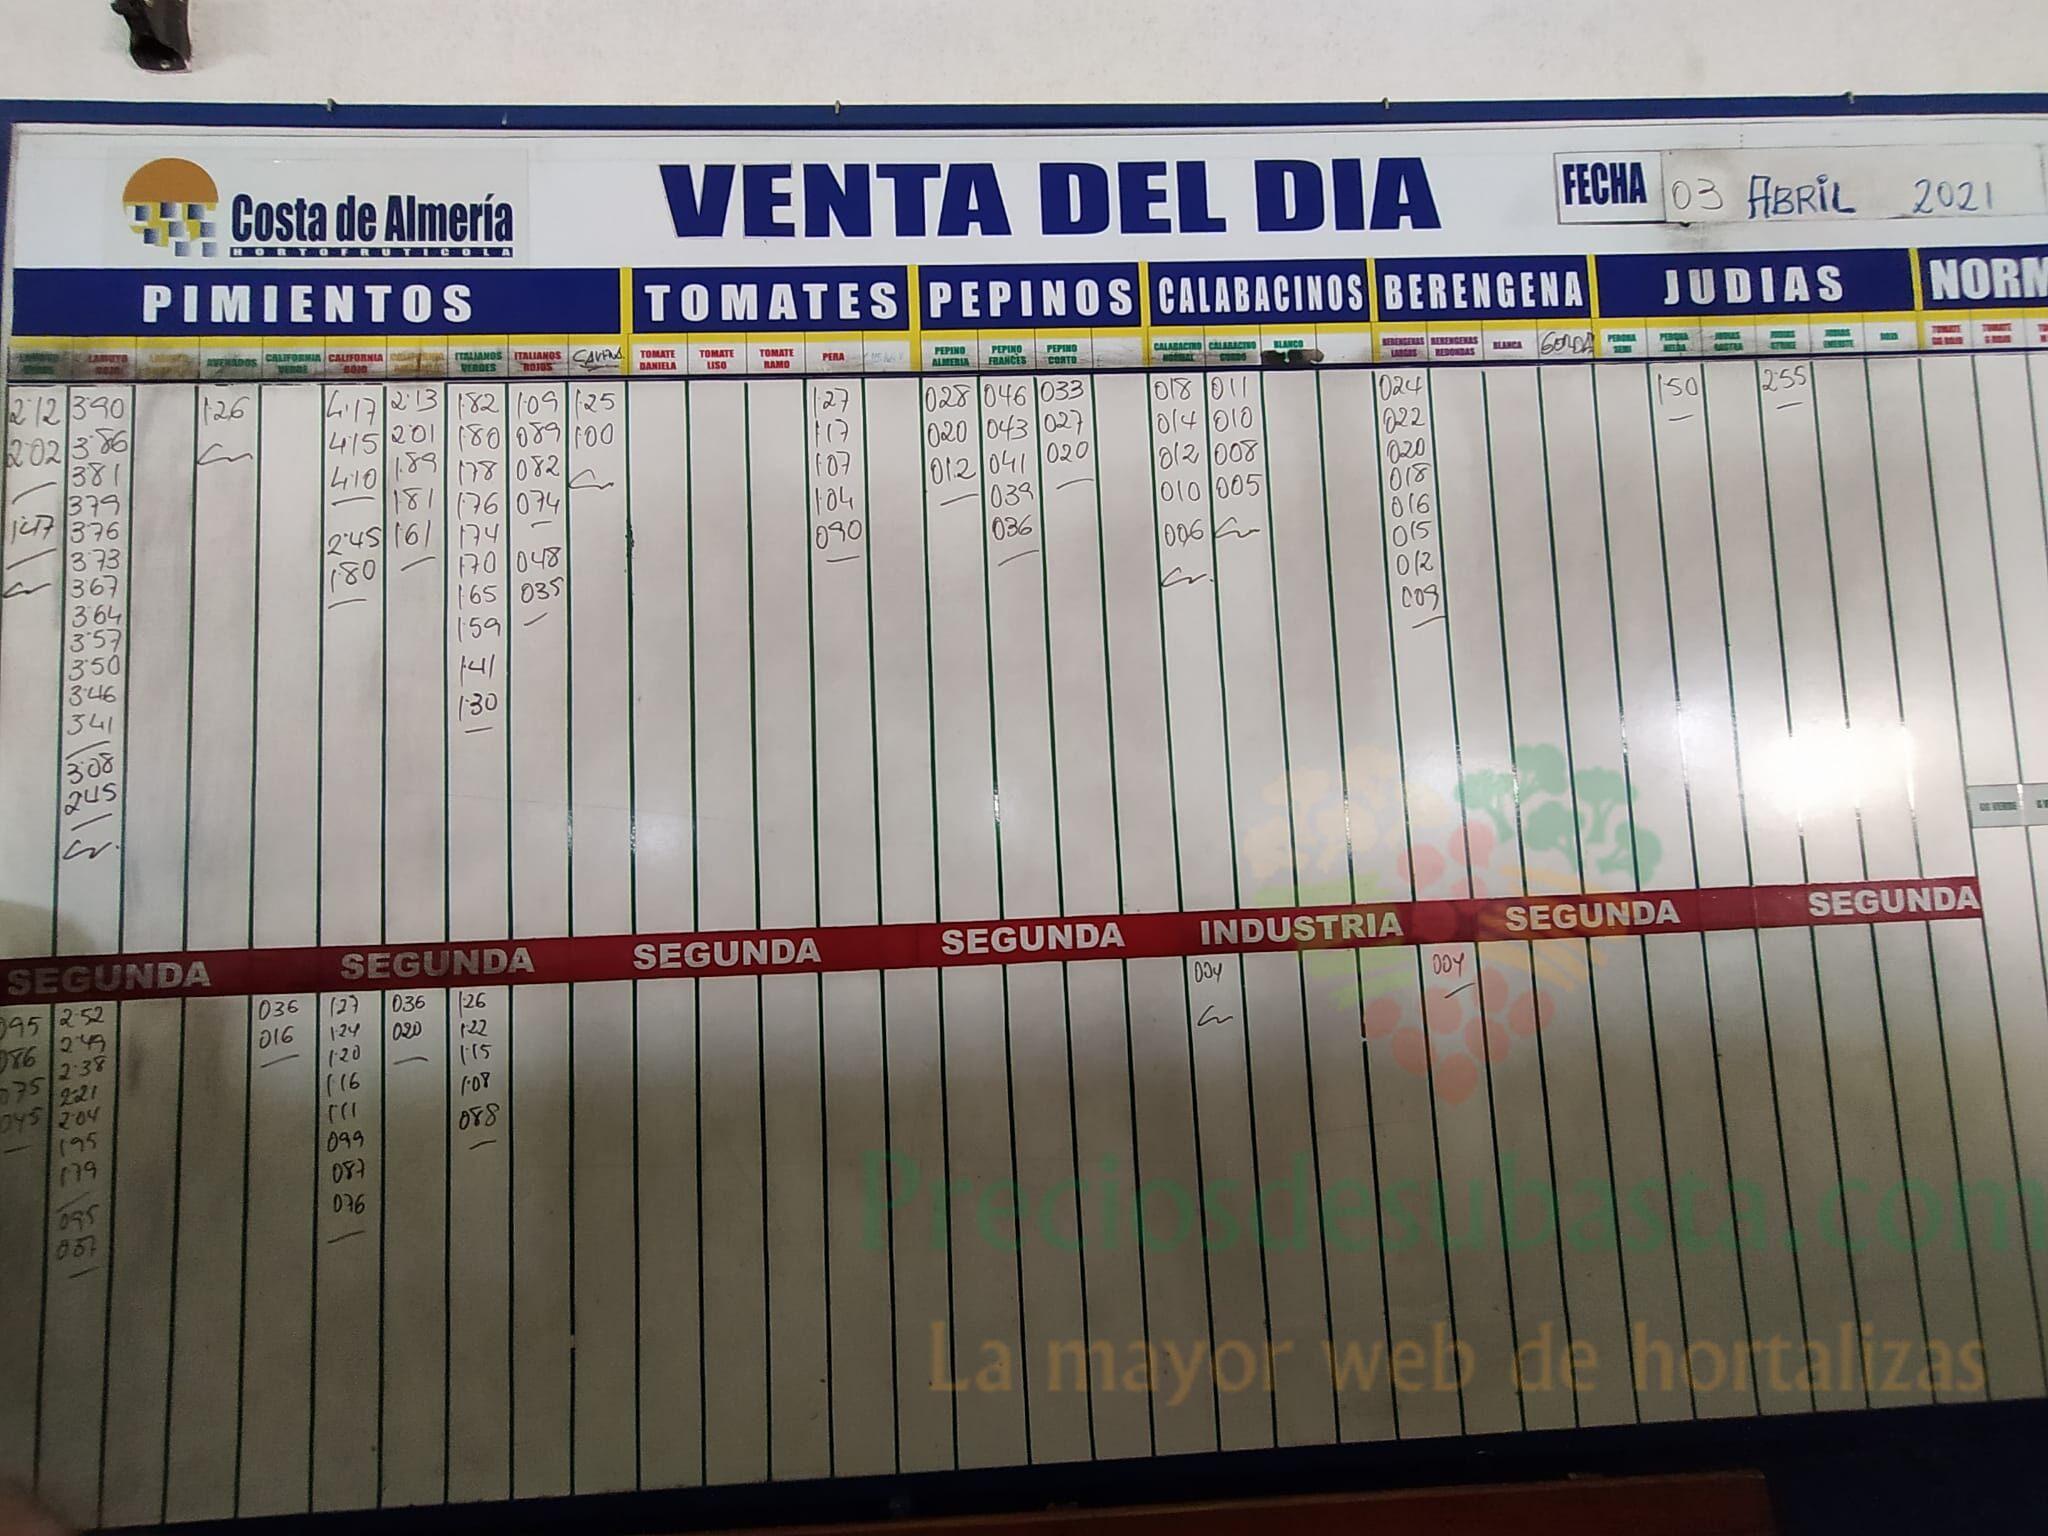 Costa de Almería
HORTOFRUTICOLA
VENTA DEL DIA
FECHA 03 ABRIL 2021
PIMIENTOS TOMATES PEPINOS CALABACINOS BERENGENA JUDIAS NORM
LAMUYO ROJO AVENADOS CALIFORNIA VERDE CALIFORNIA ROJO CALIFORNIA ITALIANOS VERDES ITALIANOS ROJOS TOMATE DANIELA TOMATE LISO TOMATE RAMO PERA PEPINO ALMERIA PEPINO FRANCES PEPINO CORTO CALABACINO NORMAL CALABACINO GORDO BLANCO BERENGENAS LARGAS BERENGENAS REDONDAS BLANCA GORDA PERONA SEMI PERONA JUDIAS JUDIAS STRIKE JUDIAS ROJO
2'12
2'02
1'47
3'90
3'86
3'81
3'79
3'76
3'73
3'67
3'64
3'57
3'50
3'46
3'41
3'08
2'45
1'26
4'17
4'15
4'10
2'45
1'80
2'13
2'01
1'89
1'81
1'61
1'82
1'80
1'78
1'76
1'74
1'70
1'65
1'59
1'41
1'30
1'09
089
082
074
048
035
1'25
1'00
1'27
1'17
1'07
1'04
090
028
020
012
046
043
041
039
036
033
027
020
018
014
012
010
006
011
010
008
005
024
022
020
018
016
015
012
009
1'50
2'55
SEGUNDA SEGUNDA SEGUNDA SEGUNDA INDUSTRIA SEGUNDA SEGUNDA
095
086
075
045
2'52
2'49
2'38
2'21
2'04
1'95
1'79
095
037
036
016
1'27
1'24
1'20
1'16
1'11
099
087
076
036
020
1'26
1'22
1'15
1'08
088
004
004
Preciosdesubasta.com
La mayor web de hortalizas